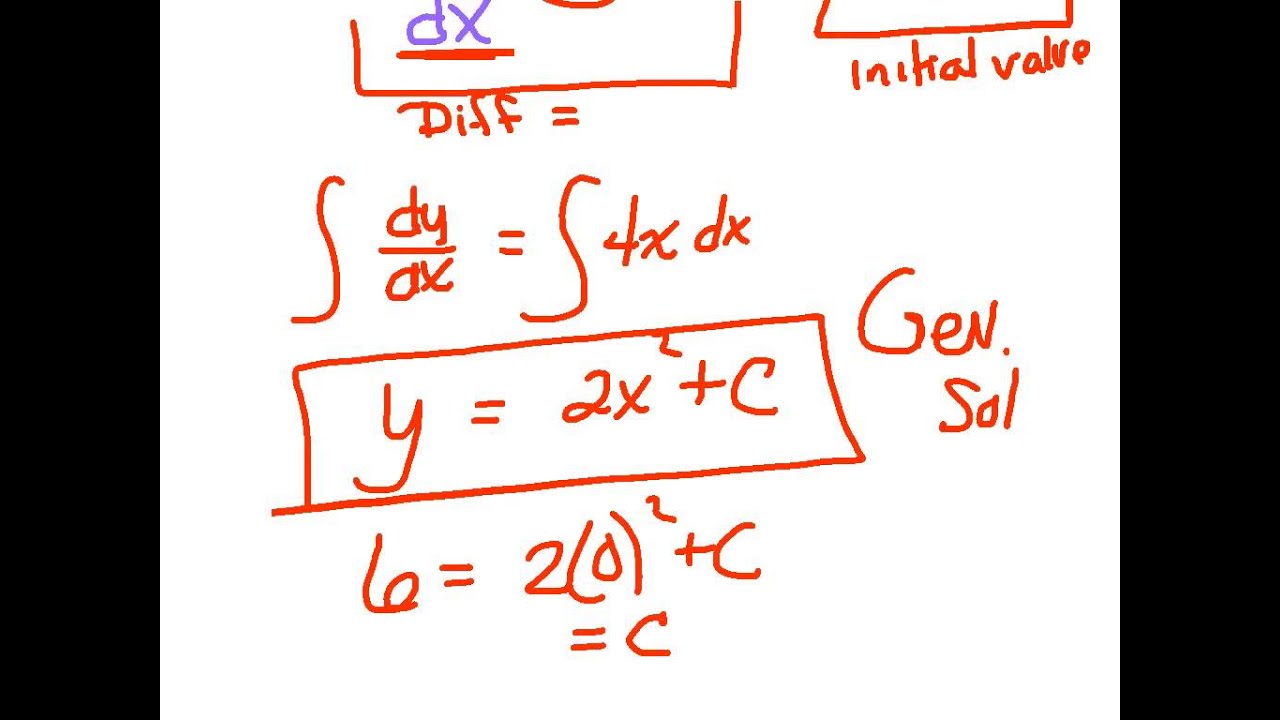 dx
Initial value
Diff =
∫ dy/dx = ∫ 4x dx
y = 2x² + C
Gen.
Sol
6 = 2(0)² + C
= C